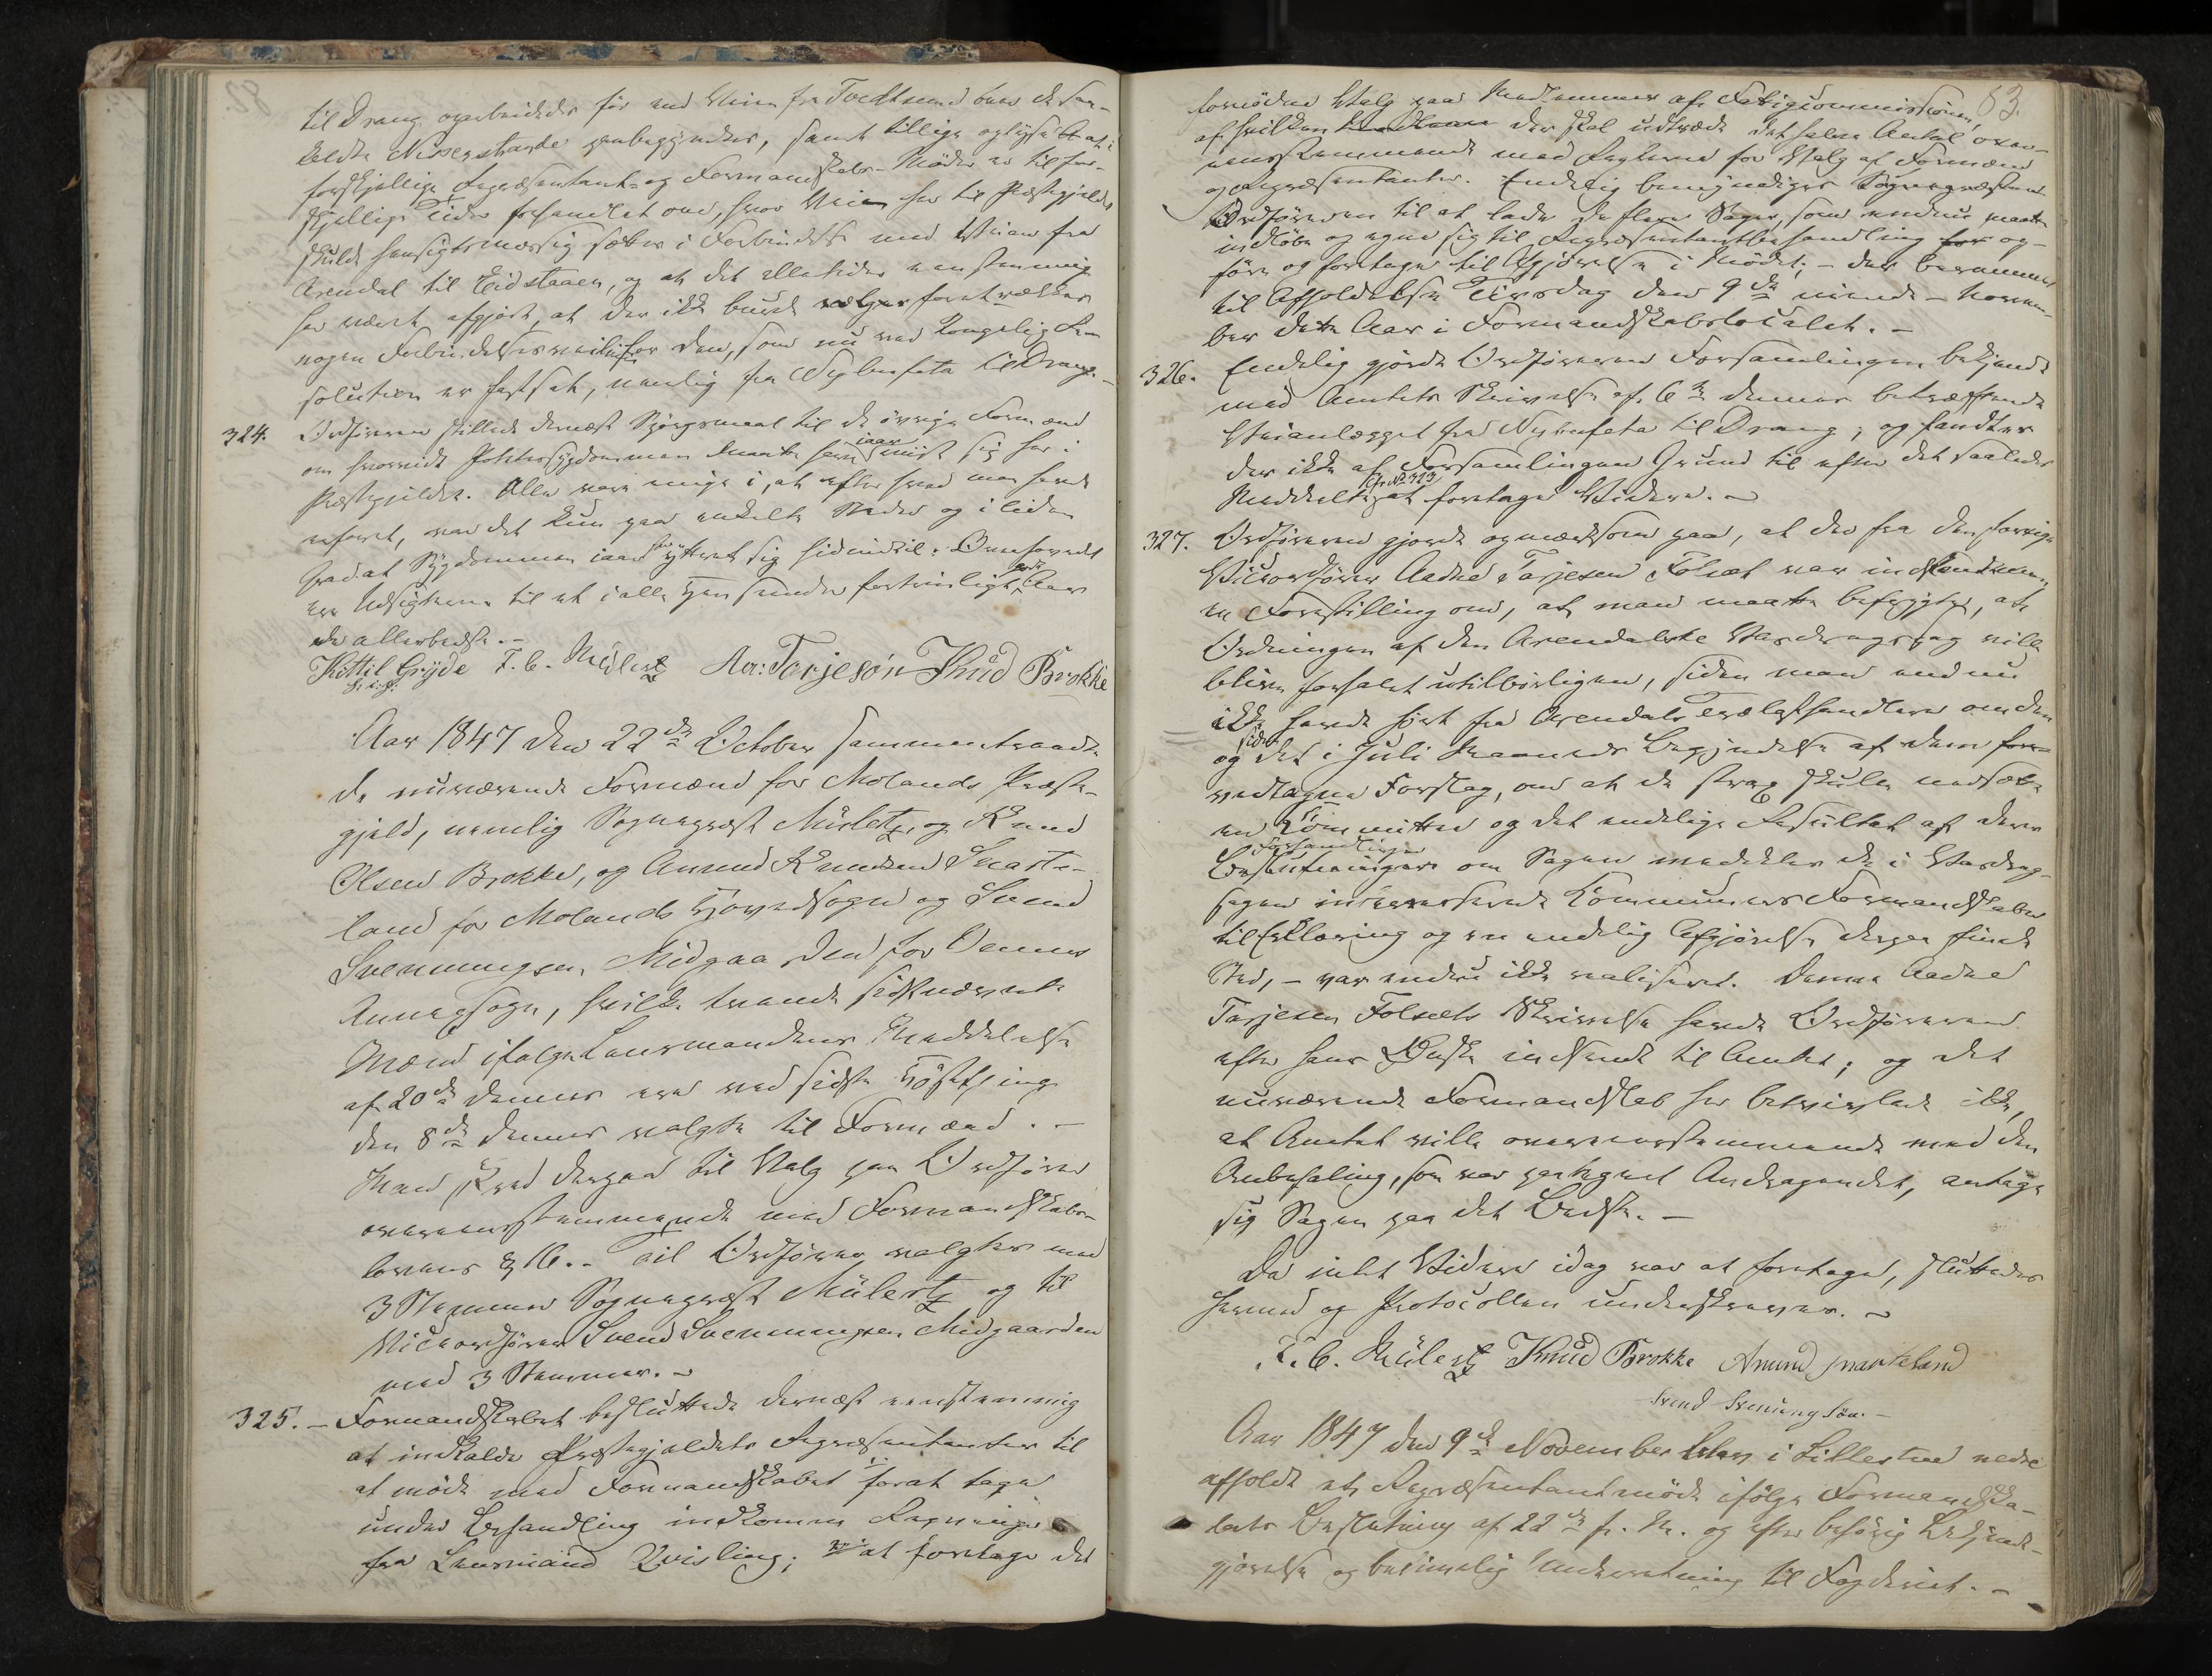 til Drang oparbeides før end Veien fra Tvedtsund over de saa-
kaldte Nisserstrande paabegyndes, samt tillige oplyse at i
forskjellige Repræsentant- og Formandskabs-Møder er til for-
skjellige Tider forhandlet om, hvor Veien her til Præstegjeldet
skulde hensigtsmæssig sættes i Forbindelse med Veien fra
Arendal til Eidstaaen, og at det alletider eenstemmig
har været afgjort, at der ikke burde vælges foretrækkes
nogen Forbindelsesvei for den, som nu ved Kongelig Re-
solution er fastsat, nemlig fra Nybufeta til Drang.-
324. Ordføreren stillede dernæst Spørgsmaal til de øvrige Formænd
om hvorvidt Potetessygdommen maatte have iaar viist sig her i
Præstegjeldet. Alle vare enige i, at efter hvad man havde
erfaret, var det kun paa enkelte Steder og i liden
Grad at Sygdommen iaar har yttret sig hidindtil. Overhovedet
ere Udsigterne til et i alle Henseender fortrinligt godt Aar
de allerbedste.-
Kittil Gryde F. C. Mülertz Aa: Tarjesøn Knud Brokke
Aar 1847 den 22de October sammentraadte
de nuværende Formænd for Molands Præste-
gjeld, nemlig Sognepræst Mülertz, og Knud
Olsen Brokke, og Anund Knudsen Snarte-
land for Molands Hovedsogn og Svend
Svenningsen Midgaarden for Vennes
Annexsogn, hvilke trende sidstnævnte
Mænd ifølge Lensmandens Meddelelse
af 20de dennes ere ved sidste Høstthing
den 8de dennes valgte til Formænd. -
Man skred derpaa til Valg paa Ordfører
overeensstemmende med Formandskabs-
lovens § 16.- Til Ordfører valgtes med
3 Stemmer Sognepræst Mülertz og til
Viceordfører Svend Svenningsen Midgaarden
med 3 Stemmer. -
325. - Formandskabet besluttede dernæst eenstemmig
at indkalde Præstegjeldets Repræsentanter til
at møde med Formandskabet for at tage
under Behandling indkomne Regninger
fra Lensmand Qvisling; at foretage det
83.
fornødne Valg paa Medlemmer af Fattigcommissionen,
af hvilken der skal udtræde det halve Antal over-
eensstemmende med Reglerne for Valg af Formænd
og Repræsentanter. Endelig bemyndiges
Ordføreren til at lade de flere Sager, som endnu maatte
indløbe og egne sig til Repræsentantbehandling for op-
føre og foretage til Afgjørelse i Mødet; - der berammes
til Afholdelse Tirsdag den 9de niende - Novem-
ber dette Aar i Formandskabslocalet. -
326. Endelig gjorde Ordføreren Forsamlingen bekjendt
med Amtets Skrivelse af 6te dennes betræffende
Veianlægget fra Nybufeta til Drang; og fandtes
der ikke af Forsamlingen Grund til efter det saaledes
Meddeelte cfr No 323 at foretage Videre. -
327. Ordføreren gjorde opmærksom paa, at der fra den forrige
Viceordfører Aadne Tarjesen Folsæt var indkommen
en Forestilling om, at man maatte befrygte, at
Ordningen af den Arendalske Vasdragssag vilde
blive forhalet utilbørligen, siden man endnu
ikke havde hørt fra Arendals Trælasthandlere om den
og det siden i Juli Maaneds Begyndelse af dem
vedtagne Forslag, om at de strax skulle nedsætte
en Committee og det endelige Resultat af deres
Forhandlinger om Sagen meddeles de i Vasdrag-
sagen interesserede Communers Formandskaber
til Erklæring og en endelig Afgjørelse derpaa finde
Sted, - var endnu ikke realiseret. Denne Aadne
Tarjesen Folsæts Skrivelse havde Ordføreren
efter hans Ønske indsendt til Amtet; og det
nuværende Formandskab her betvivlede ikke,
at Amtet ville overeensstemmende med den
Anbefaling, som var paategnet Andragendet, antage
sig Sagen paa det Bedste. -
Da intet Videre idag var at foretage, sluttedes
hermed og Protocollen underskreves. -
F. C. Mülertz Knud Brokke Anund Snarteland
Svend Svenningsøn. -
Aar 1847 den 9de November blev i Lillestue nedre
afholdt et Repræsentantmøde ifølge Formandska-
bets Beslutning af 22de f. M. og efter behørig Bekjendt-
gjørelse og betimelig Underretning til Fogderiet. -